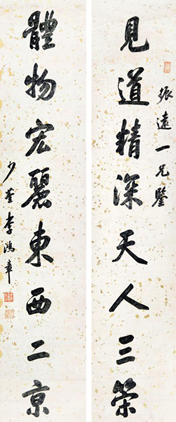 見道精深天人三策
振遠一兄鑒
體物宏麗東西二京
少荃李鴻章